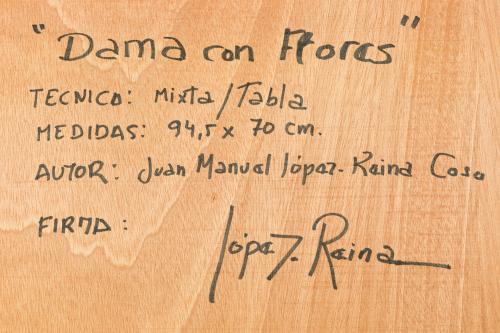 "Dama con Flores"
TECNICO: Mixta/Tabla
MEDIDAS: 94,5 x 70 cm.
AUTOR: Juan Manuel López-Reina Coso
FIRMA:
López-Reina